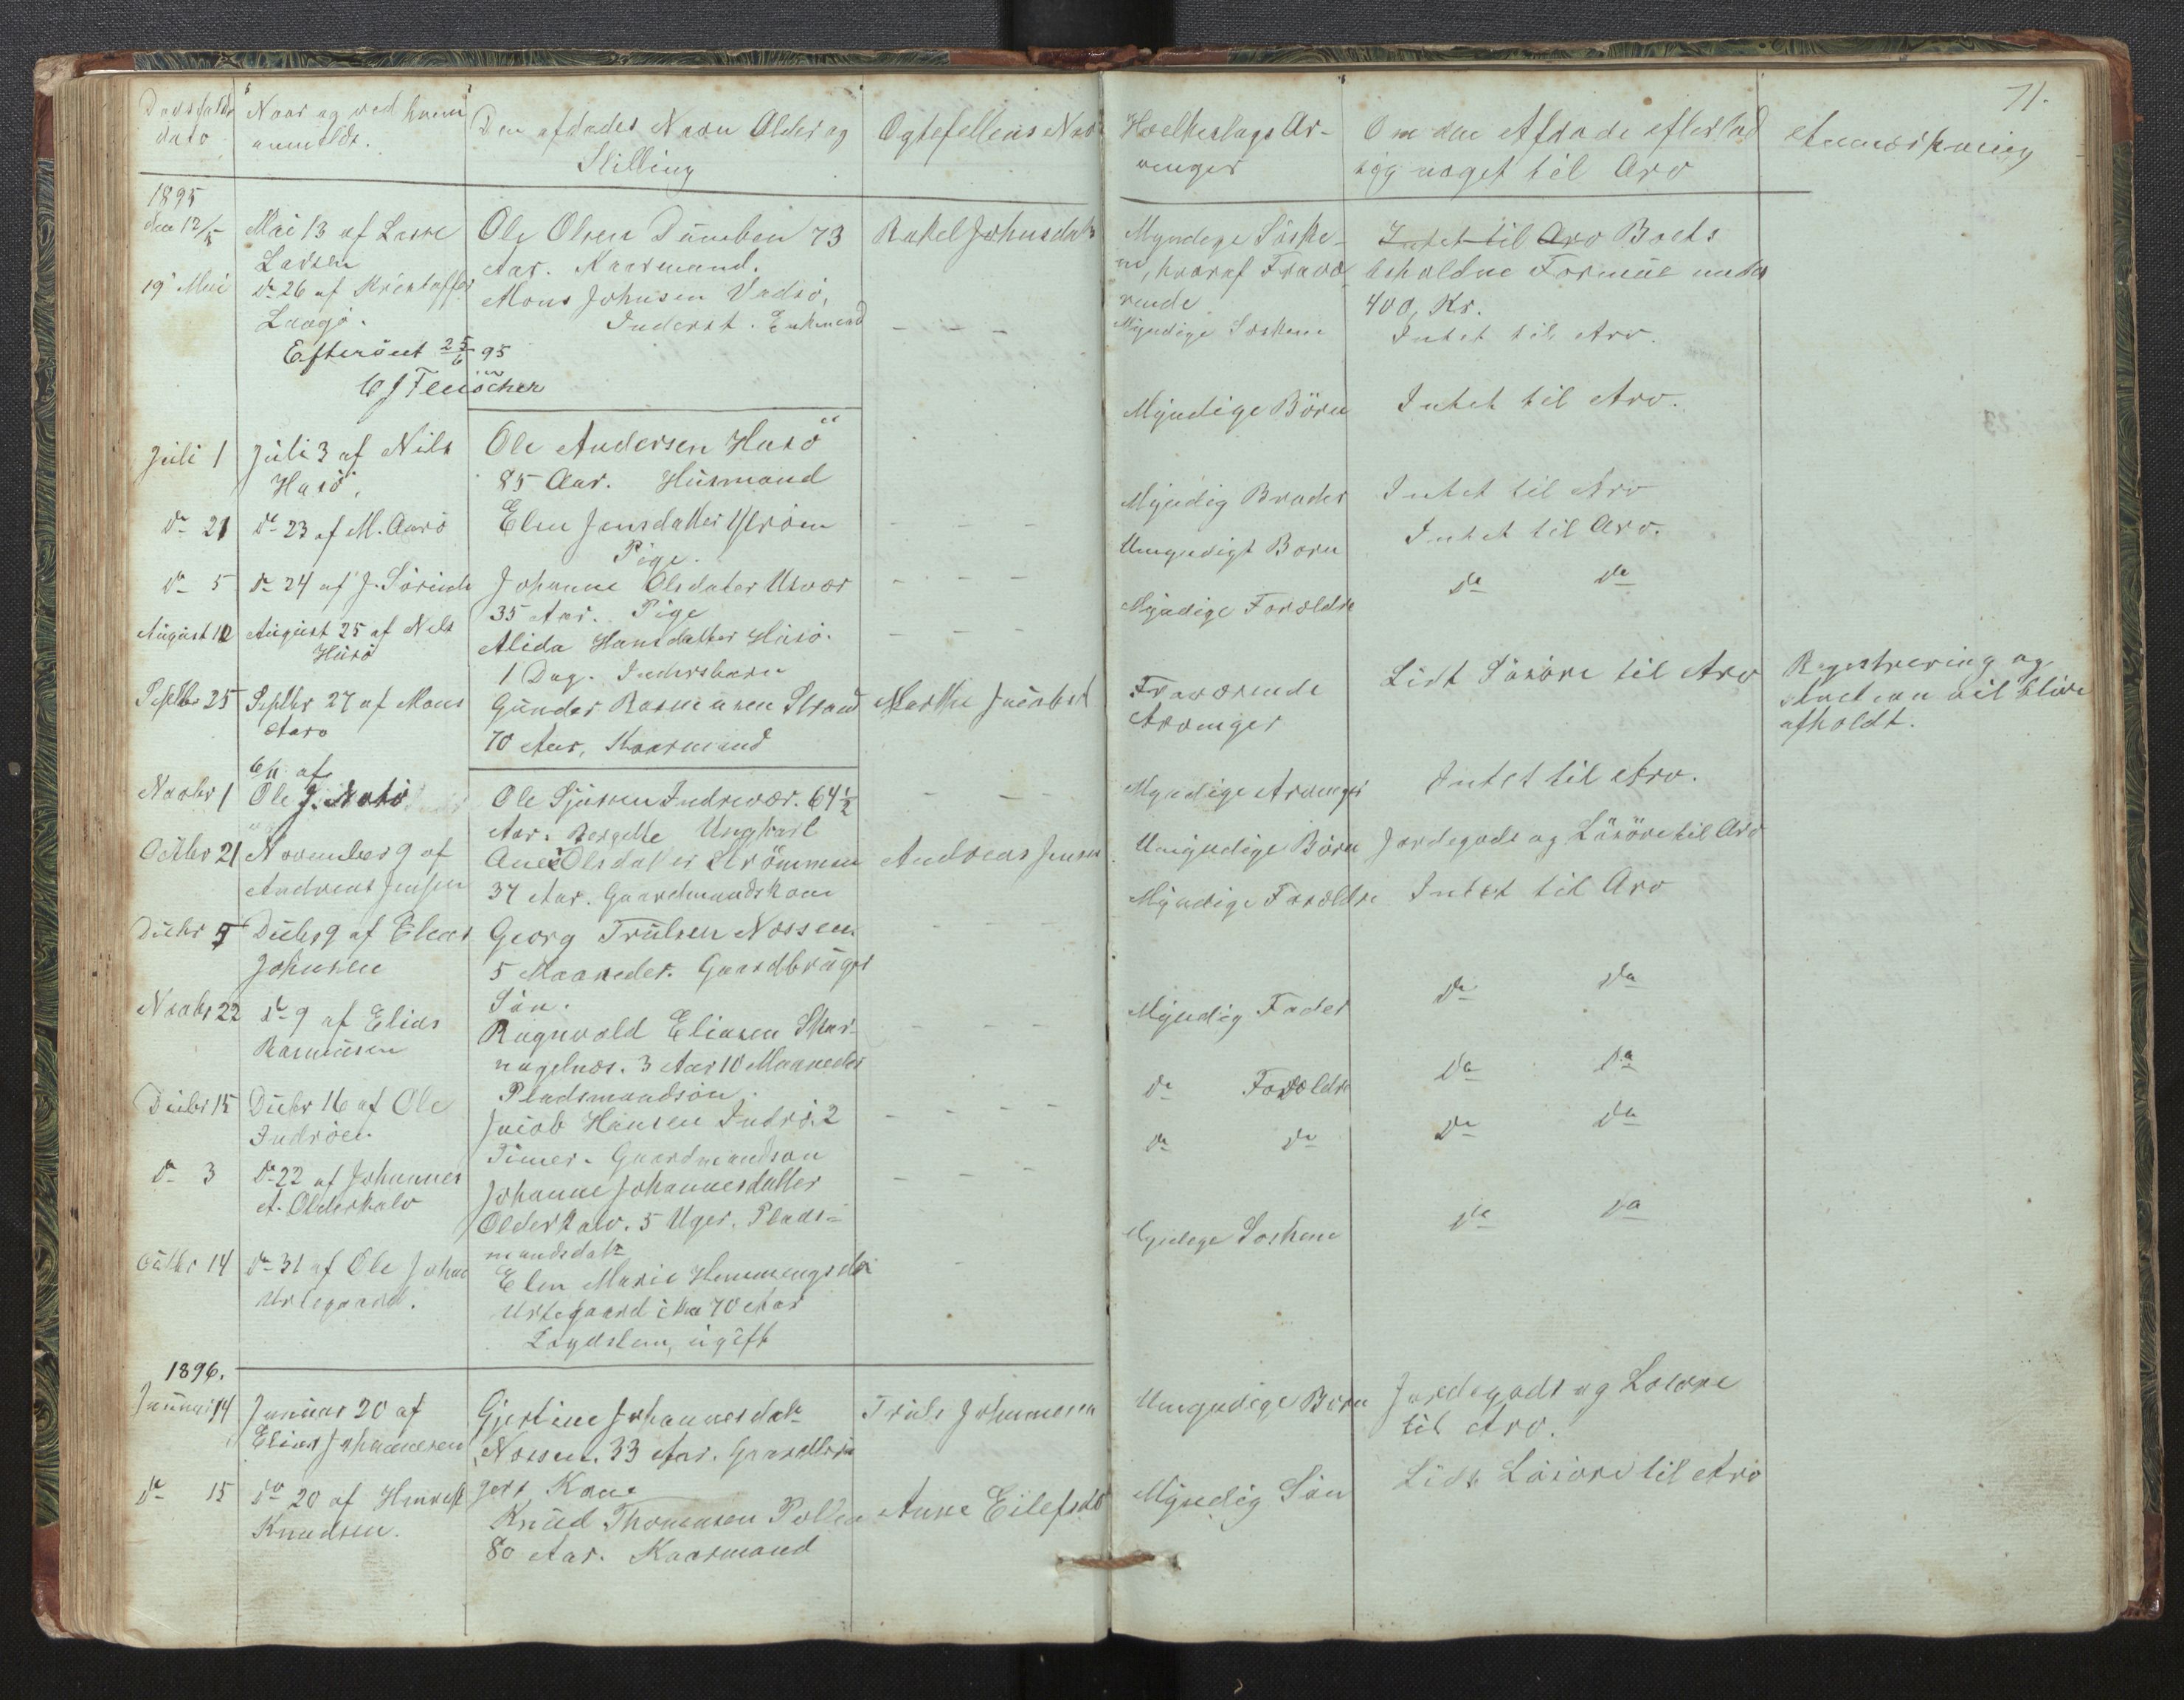 71.
Dødsfaldets dato
Naar og ved hvem anmeldt.
Den afdødes Navn Alder og Stilling
Ægtefellens Navn
Hvelkeslags Ar-
vinger
Om den Afdøde efterlod
sig noget til Arv
Anmerkning
1895
den 12/5
Mai 13 af Lasse
Larsen
Ole Olsen Dumbein 73
Aar. Kaarmand.
Rakel Johnsdatr
Myndige Søske-
ne, hvoraf Fravæ
rende
Intet til Arv Boets
beholdne Formue under
400, Kr.
19 Mai
do 26 af Kristoffer
Laagø.
Mons Johnsen Vadsø,
Inderst. Enkmand
- - -
Myndige Søskene
Intet til Arv.
Efterseet 25/6 95
Myndige Börn
Intet til Arv.
Juli 1
Juli 3 af Nils
Husö.
Ole Andersen Husö
85 Aar. Husmand
Myndig Broder
Intet til Arv
do 21
do 23 af M. Aarö
Elen Jensdatter Ytröen
Pige.
- - -
Umyndigt Barn
Intet til Arv.
do 5
do 24 af J. Sörinde
Johanne Olsdater Utvær
35 Aar. Pige
- - -
Myndige Forældre
do do
August 12
August 25 af Nils
Husö
Alida Hansdatter Husö.
1 Dag. Indersbarn
- - -
Septbr 25
Septbr 27 af Mons
Aarø
Gunder Rasmusen Strand
70 Aar, Kaarmand
Marthe Jacobsd
Fraværende
Arvinger
Lidt Løsøre til Arv
Registrering og
auction vil blive
afholdt.
Novbr 1
6/11 af
Ole J. Notø
Ole Sjursen Indrevær. 64 1/2
Aar. Ungkarl
- - -
Myndige Arvinger
Intet til Arv.
Octbr 21
November 9 af
Andreas Jensen
Ane Olsdater Strömmen
37 Aar. Gaardmandskone
Andreas Jensen
Umyndige Börn
Jordegods og Lösöre til Arv
Decbr 5
Decbr 9 af Elias
Johnsen
Georg Trulsen Nossen.
5 Maaneder. Gaardbruger
Sön.
- - -
Myndige Forældre
Intet til Arv
Novbr 22
do 9 af Elias
Rasmusen
Ragnvald Eliasen Skar-
nagelnes. 3 Aar 10 Maaneder
Pladsmandsön.
- - -
Myndig Fader
do do
Decbr 15
Decbr 16 af Ole
Indröen.
Jacob Hansen Indrø. 2
Timer. Gaardmandsøn
- - - -
do Forældre
do do
do 3
do 22 af Johannes
A. Olderkalv
Johanne Johannesdatter
Olderkalv. 5 Uger. Plads-
mandsdatr
- - -
do do
do do
Octbr 14
do 31 af Ole Johan
Urtegaard.
Elen Marie Hemmengsdr
Urtegaard i ka 70 Aar
Lægdslem, ugift
-
Myndege Søskene
do do
1896.
Januar 14
Januar 20 af
Elias Johannesen
Gjertine Johannesdatr
Nossen. 33 Aar. Gaardbru
gers Kone
Truls Johannesen
Umyndige Børn
Jordegods og Løsøre
til Arv.
do 15
do 20 af Henrik
Knudsen.
Knud Thomasen Pollen
80 Aar. Kaarmand
Anne Eilefsdr
Myndig Sön
Lidt Løsøre til Arv